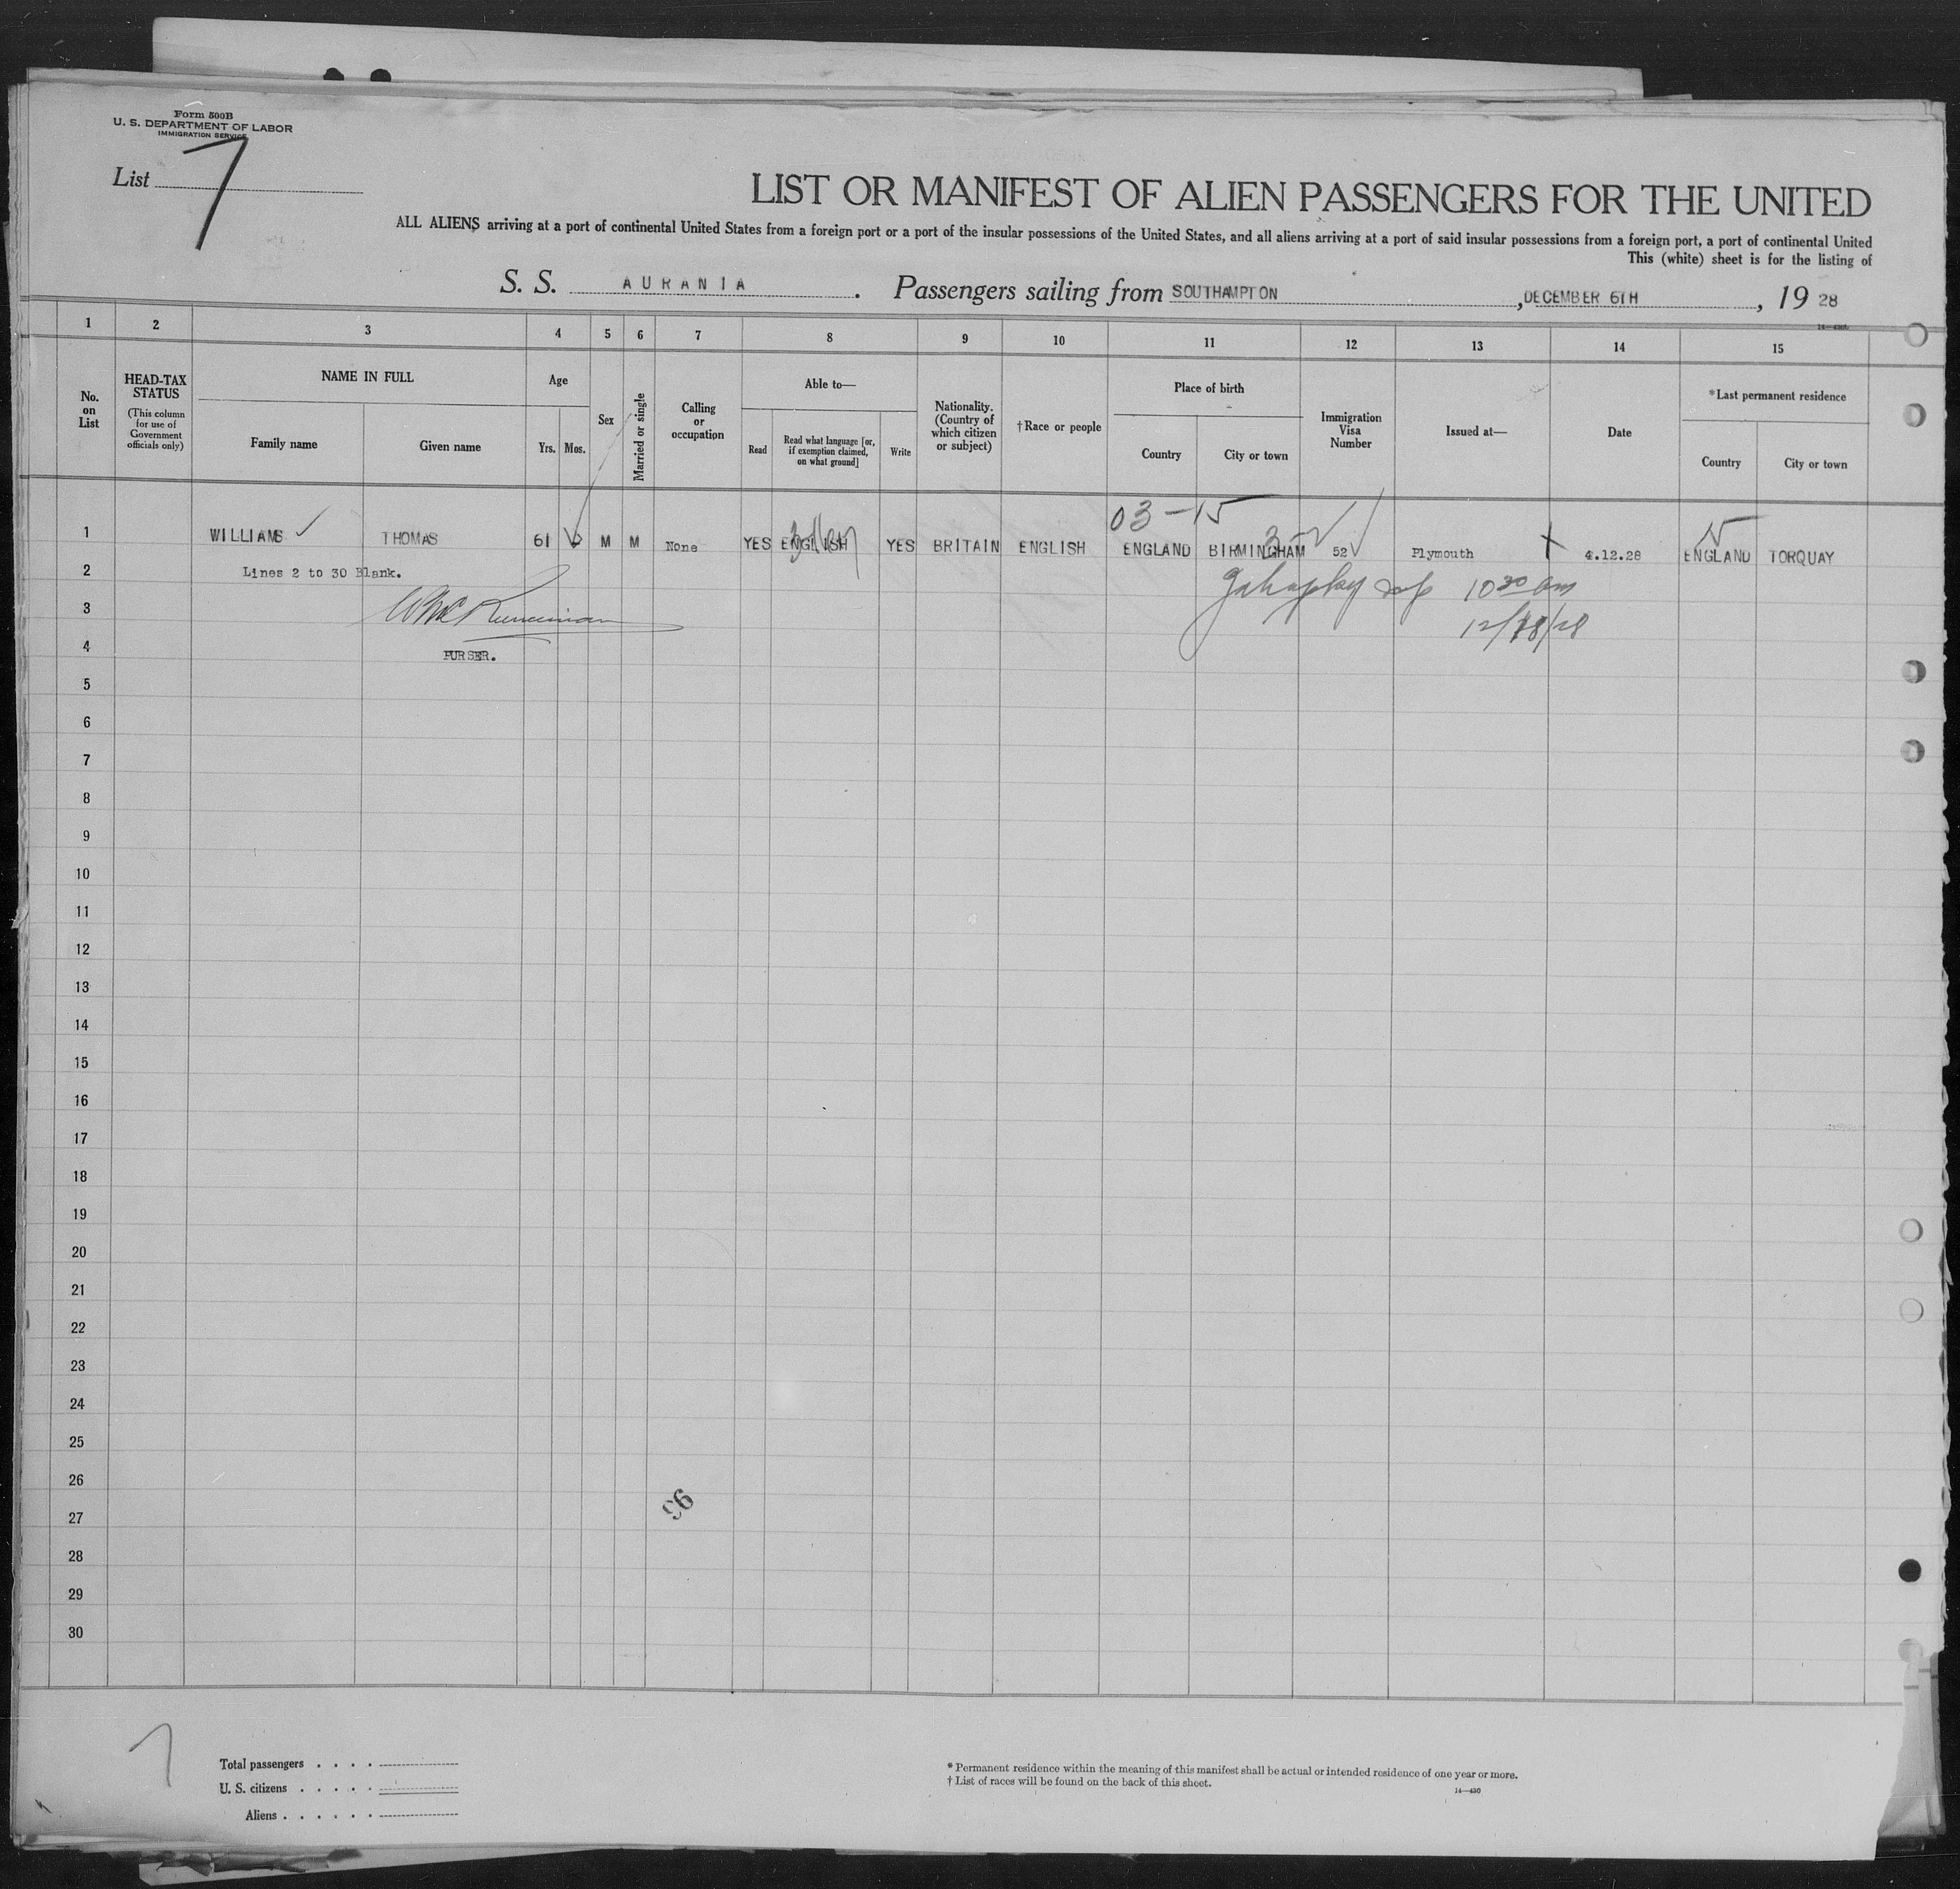 Form 500B
U. S. DEPARTMENT OF LABOR
IMMIGRATION SERVICE
List 7
LIST OR MANIFEST OF ALIEN PASSENGERS FOR THE UNITED
ALL ALIENS arriving at a port of continental United States from a foreign port or a port of the insular possessions of the United States, and all aliens arriving at a port of said insular possessions from a foreign port, a port of continental United
This (white) sheet is for the listing of
S. S. AURANIA. Passengers sailing from SOUTHAMPTON, DECEMBER 6TH, 19 28
1 2 3 4 5 6 7 8 9 10 11 12 13 14 15
No. on List
HEAD-TAX STATUS
(This column for use of Government officials only)
NAME IN FULL
Family name
Given name
Age
Yrs. Mos.
Sex
Married or single
Calling or occupation
Able to—
Read
Read what language [or, if exemption claimed, on what ground]
Write
Nationality. (Country of which citizen or subject)
†Race or people
Place of birth
Country
City or town
Immigration Visa Number
Issued at—
Date
*Last permanent residence
Country
City or town
03-15
1 WILLIAMS THOMAS 61 M M None YES ENGLISH YES BRITAIN ENGLISH ENGLAND BIRMINGHAM 52 Plymouth 4.12.28 ENGLAND TORQUAY
2 Lines 2 to 30 Blank.
10 30 am
3
12/18/28
4 PURSER.
5
6
7
8
9
10
11
12
13
14
15
16
17
18
19
20
21
22
23
24
25
26
27
28
29
30
96
7
Total passengers
U. S. citizens
Aliens
* Permanent residence within the meaning of this manifest shall be actual or intended residence of one year or more.
† List of races will be found on the back of this sheet.
14—430